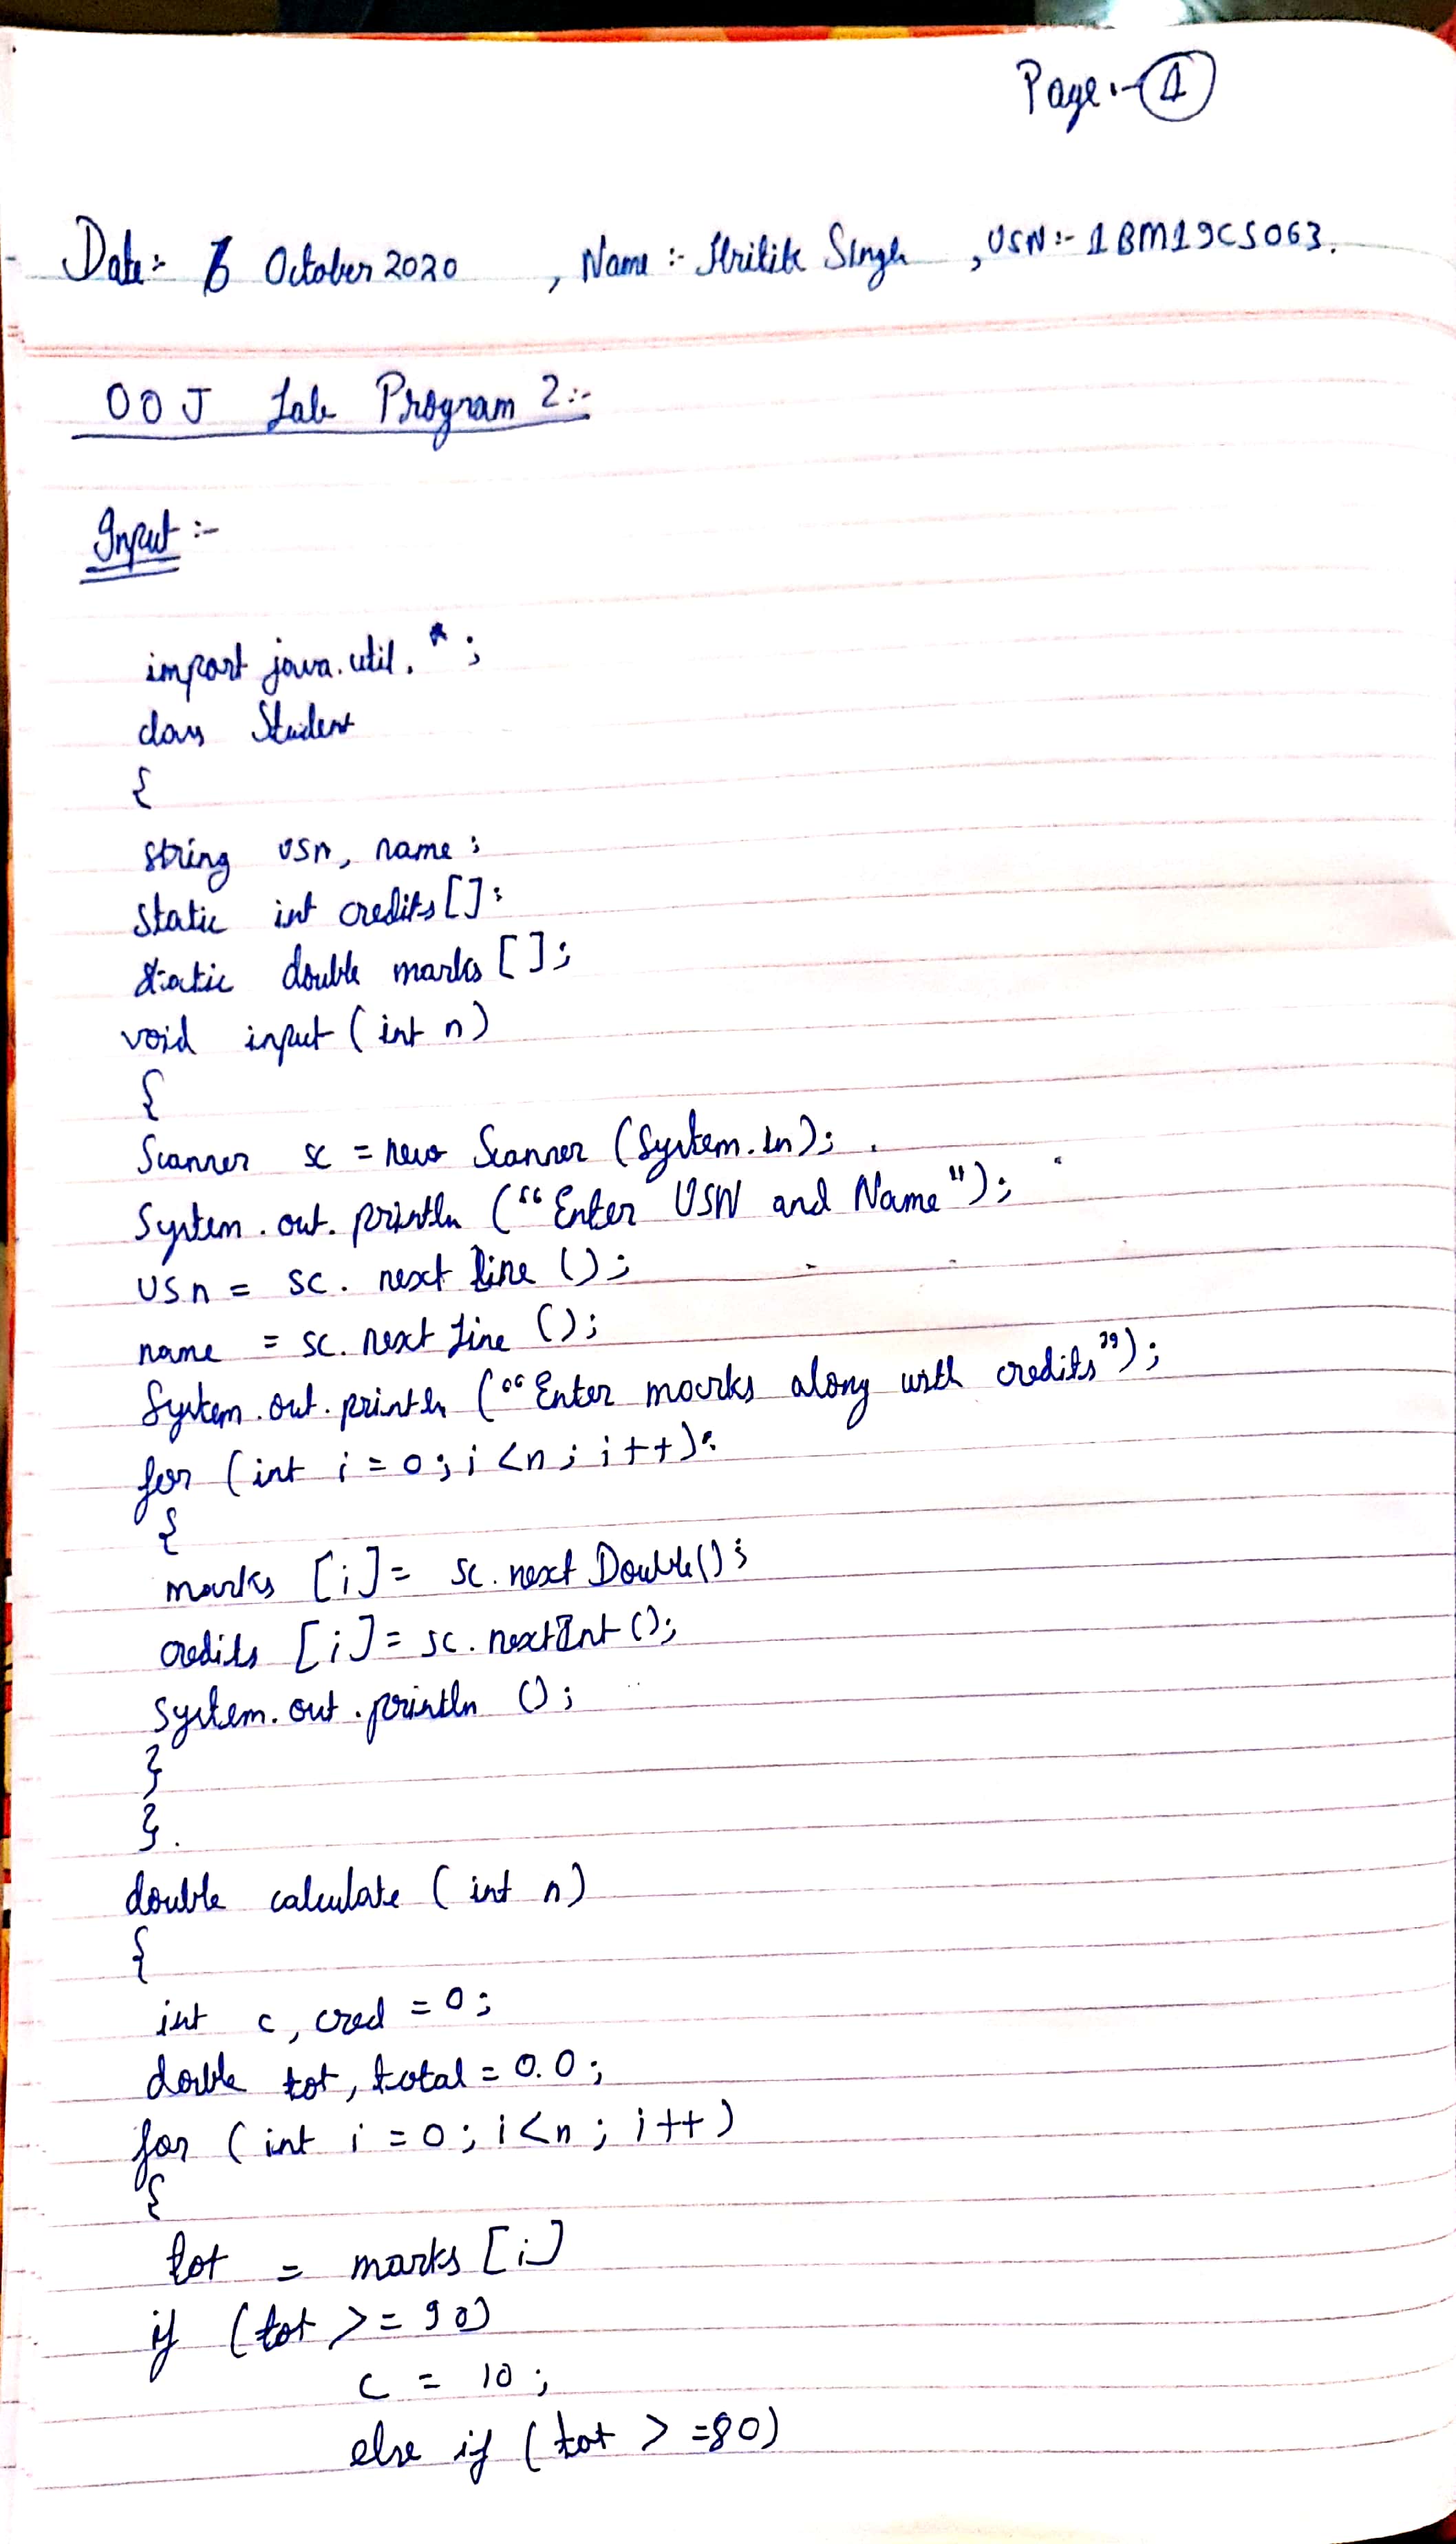 Page :- 1
Date :- 6 October 2020 , Name :- Hritik Singh , USN :- 1BM19CS063.
OOJ Lab Program 2 :-
Input :-
import java.util.*;
class Student
{
string usn, name;
static int credits[];
static double marks[];
void input (int n)
{
Scanner sc = new Scanner (System.in);
System.out.println ("Enter USN and Name");
usn = sc. next line ();
name = sc. next Line ();
System.out.println ("Enter marks along with credits");
for (int i = 0; i <n; i++):
{
marks [i] = sc. next Double();
credits [i] = sc. nextInt ();
system. out. println ();
}
}.
double calculate (int n)
{
int c, cred = 0;
double tot, total = 0.0;
for (int i = 0; i<n; i++)
{
tot = marks [i]
if (tot >= 90)
c = 10;
else if (tot > =80)